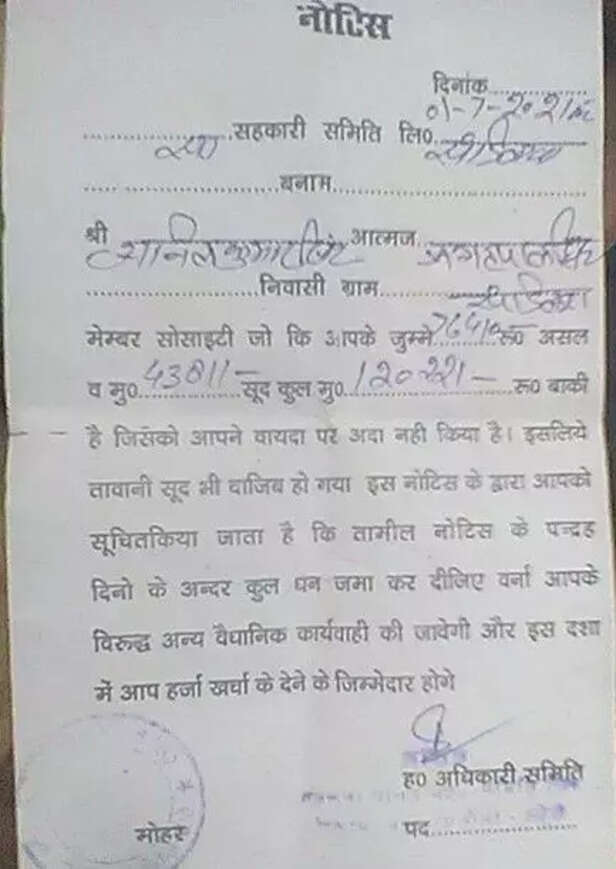 नोटिस
दिनांक..............
01-7-2021
............ सहकारी समिति लि०............
............बनाम............
श्री अनिल कुमार सिंह आत्मज
............निवासी ग्राम............
मेम्बर सोसाइटी जो कि आपके जुम्मे 76410 रू० असल
व मु० 43811/- सूद कुल मु० 120221/- रू० बाकी
है जिसको आपने वायदा पर अदा नही किया है। इसलिये
तावानी सूद भी वाजिब हो गया इस नोटिस के द्वारा आपको
सूचितकिया जाता है कि तामील नोटिस के पन्द्रह
दिनो के अन्दर कुल धन जमा कर दीजिए वर्ना आपके
विरूद्ध अन्य वैधानिक कार्यवाही की जावेगी और इस दशा
में आप हर्जा खर्चा के देने के जिम्मेदार होगे
ह० अधिकारी समिति
मोहर
पद..............